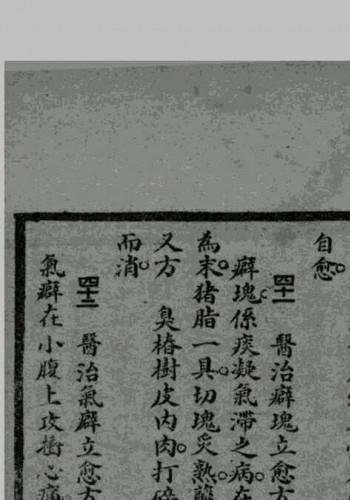 自愈
四十二 醫治癖瑰立愈方
癖瑰係痰凝氣滯之病在
為末猪脂一具切瑰炙熟蘸
又方 臭椿樹皮內肉打碎
而消
四十三 醫治氣癖立愈方
氣癖在小腹上攻衝心痛